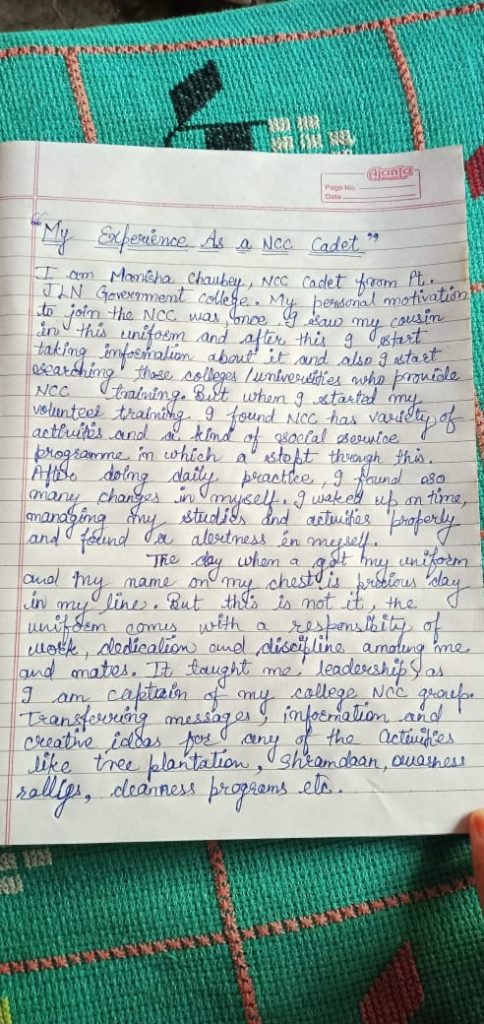 Ajanta
Page No.
Date
"My Experience As a NCC Cadet"
I am Manisha Chaubey, NCC Cadet from Pt.
JLN Government college. My personal motivation
to join the NCC was, once I saw my cousin
in this uniform and after this I start
taking information about it and also I start
searching those colleges/universities who provide
NCC training. But when I started my
volunteer training. I found NCC has variety of
activities and a kind of social service
programme in which a through this.
After doing daily practice, I found so
many changes in myself. I waked up on time,
managing my studies and activities properly
and found a alertness in myself.
The day when a got my uniform
and my name on my chest is precious day
in my line. But this is not it, the
uniform comes with a responsibity of
work, dedication and discipline among me
and mates. It tought me leadership as
I am captain of my college NCC group.
Transferring messages, information and
creative ideas for any of the activities
like tree plantation, Shramdaan, awarness
rallies, cleanness programs etc.